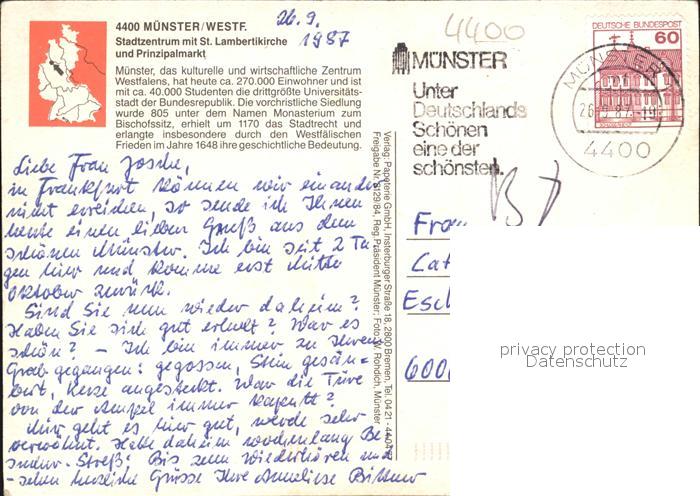 4400 MÜNSTER/WESTF.
Stadtzentrum mit St. Lambertikirche
und Prinzipalmarkt
Münster, das kulturelle und wirtschaftliche Zentrum
Westfalens, hat heute ca. 270.000 Einwohner und ist
mit ca. 40.000 Studenten die drittgrößte Universitäts-
stadt der Bundesrepublik. Die vorchristliche Siedlung
wurde 805 unter dem Namen Monasterium zum
Bischofssitz, erhielt um 1170 das Stadtrecht und
erlangte insbesondere durch den Westfälischen
Frieden im Jahre 1648 ihre geschichtliche Bedeutung.
26.9.
1987
Liebe Frau Joschu,
in Frankfurt können wir einander
nicht erreichen, so sende ich Ihnen
heute einen lieben Gruß aus dem
schönen Münster. Ich bin seit 2 Ta
gen hier und komme erst Mitte
Oktober zurück.
Sind Sie nun wieder daheim?
Haben Sie sich gut erholt? War es
schön? - Ich bin immer zu Ihrem
Grab gegangen: gegossen, Stein gesäu=
bert, Kerze angesteckt. War die Türe
von der Ampel immer kaputt?
Mir geht es hier gut, werde sehr
verwöhnt. Hatte daheim wochenlang Be
sucher-Streß! Bis zum Wiederhören und
-sehen herzliche Grüsse Ihre Anneliese Bittner
Verlag: Papeterie GmbH, Insterburger Straße 18, 2800 Bremen, Tel. 0421-
Freigabe Nr. 5129/84, Reg. Präsident Münster; Foto: W. Rohdich, Münster
4400
MÜNSTER
Unter
Deutschlands
Schönen
eine der
schönsten.
DEUTSCHE BUNDESPOST
60
MÜNSTER
4400
Frau
Cat
Esch
600
privacy protection
Datenschutz